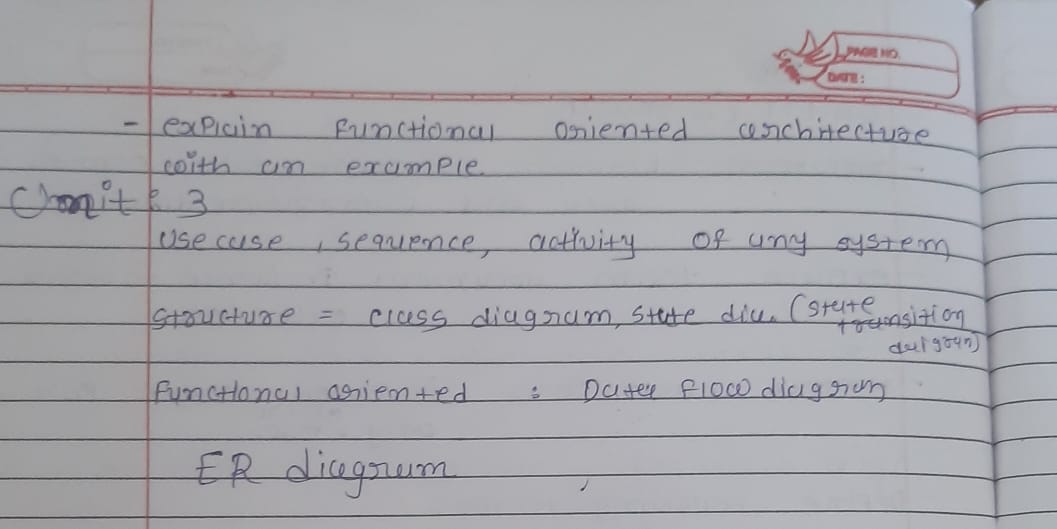 PAGE NO.
DATE:
- explain functional oriented architecture
with an example
Unit : 3
Use case, sequence, activity of any system
Structure = class diagram, state dia. (state
transition
functional oriented : Data flow diagram
ER diagram